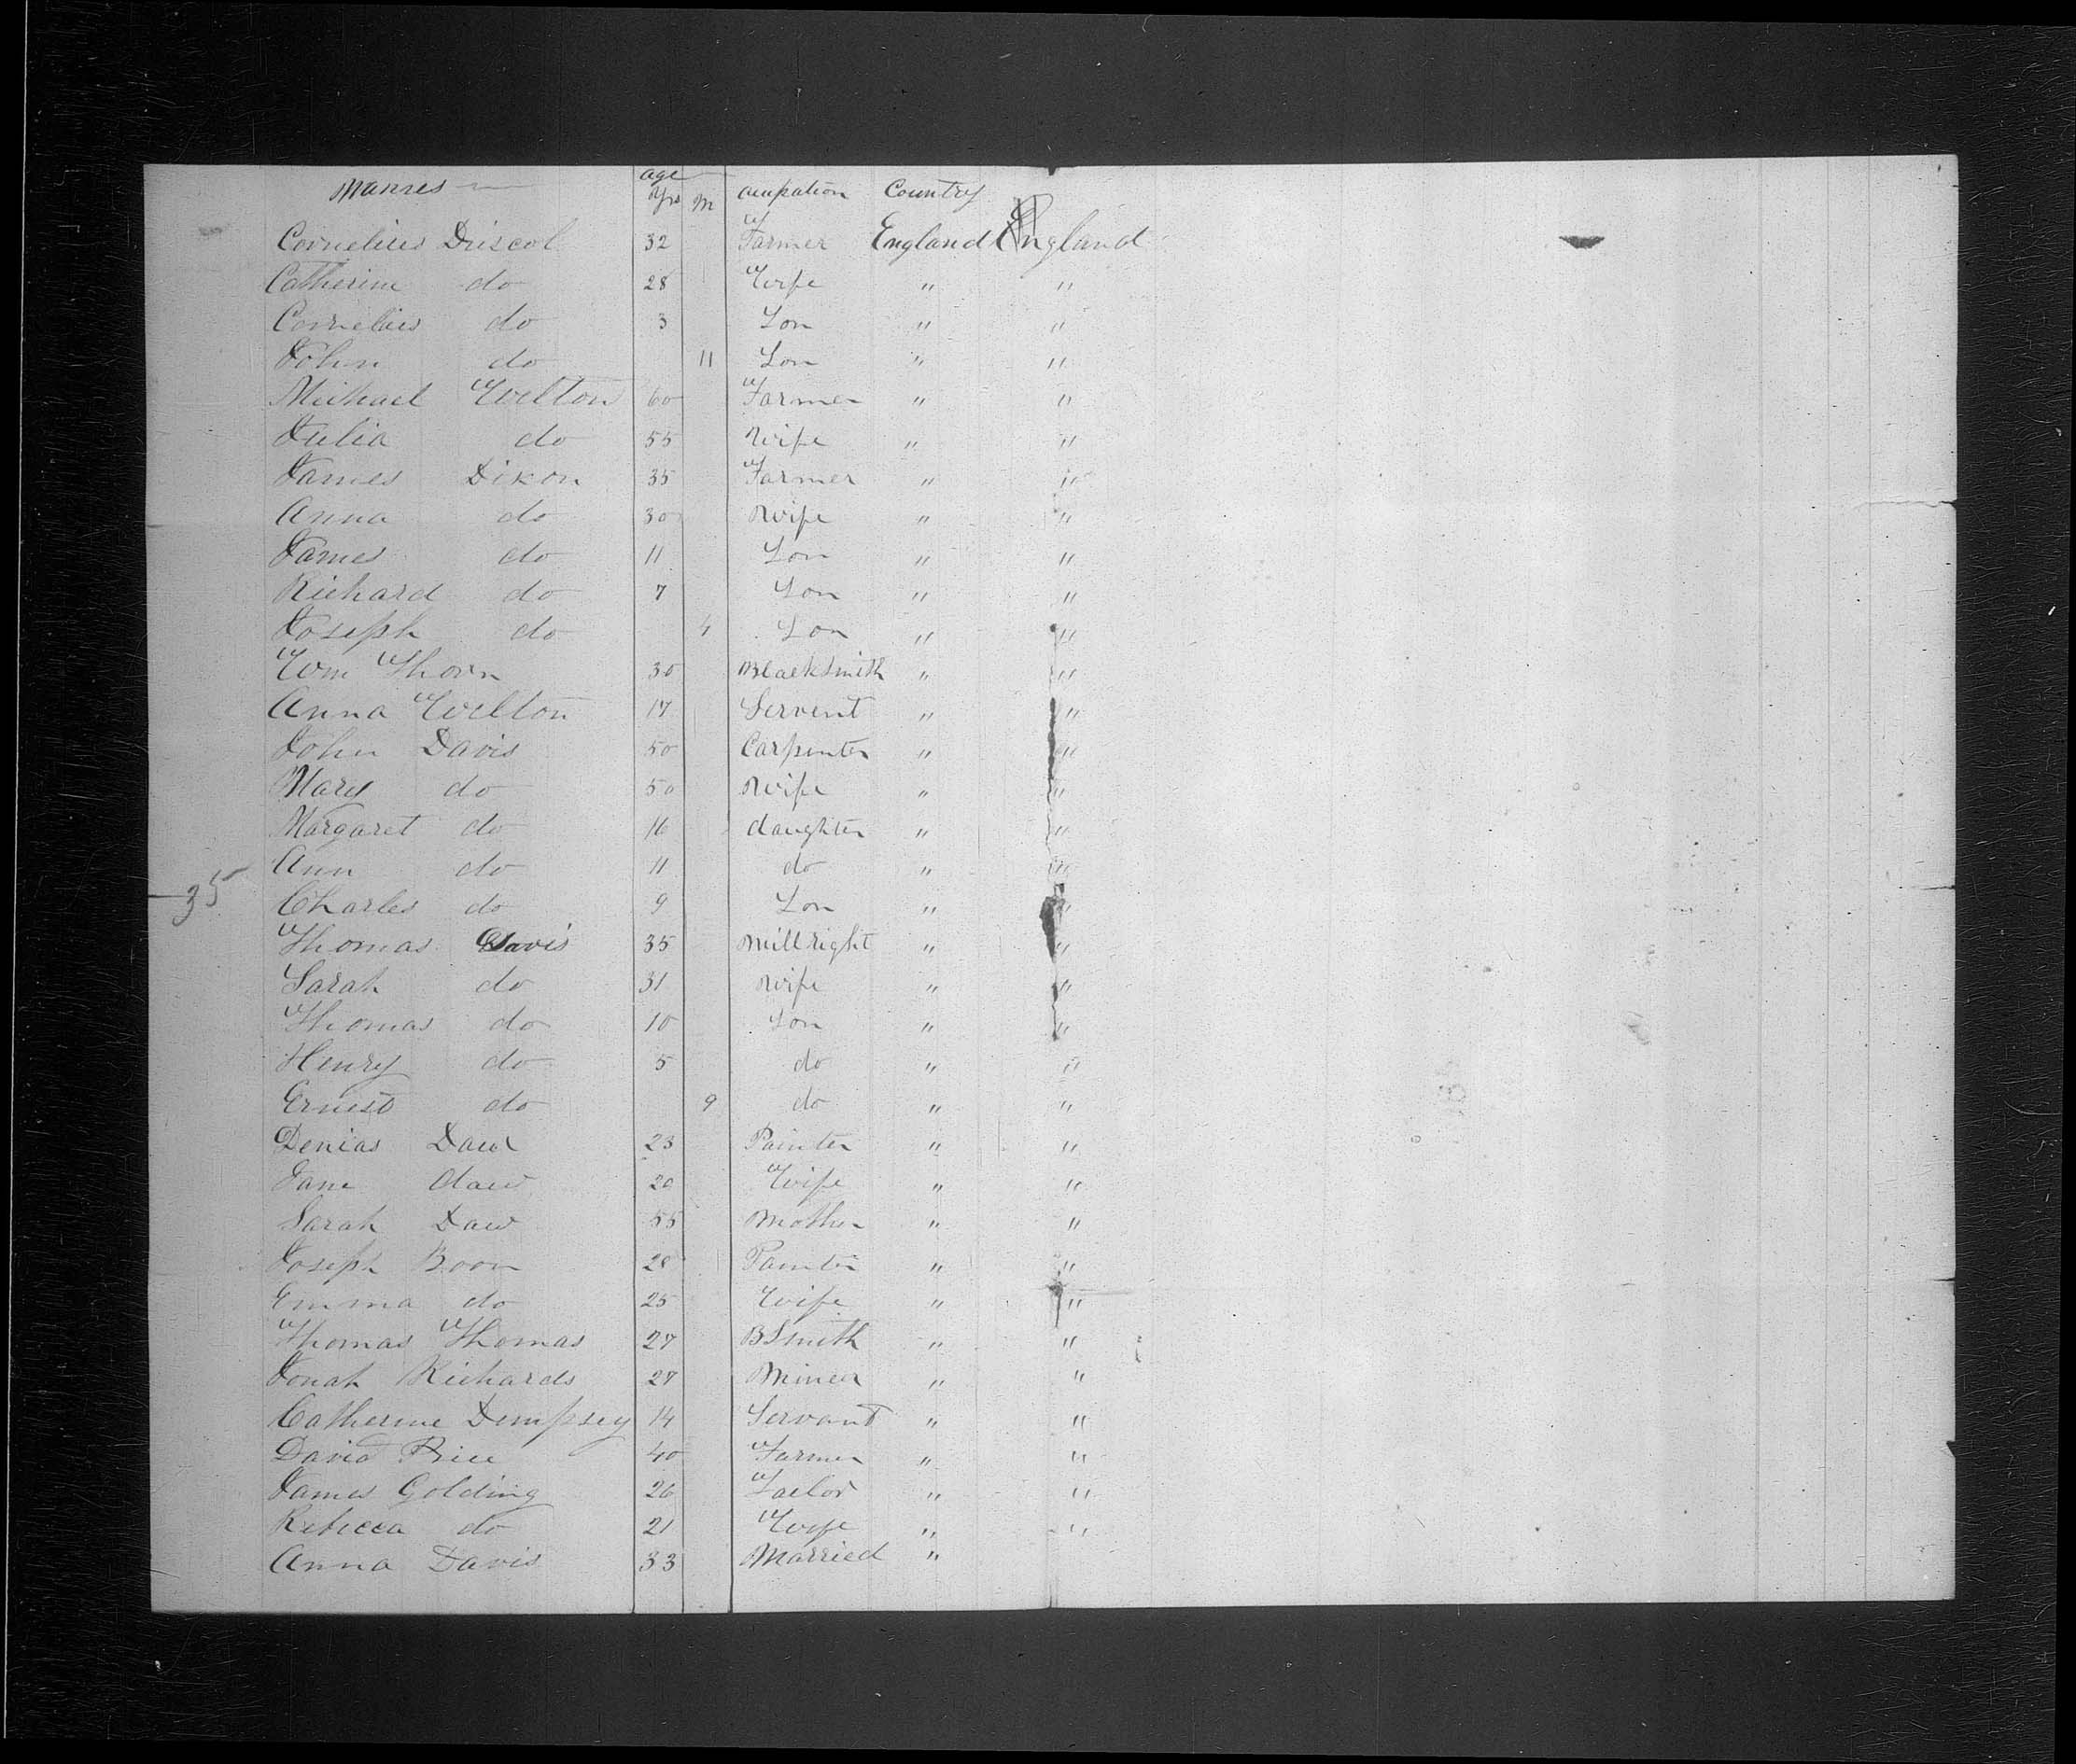 Names age Yrs M occupation Country
Cornelius Driscol 32 Farmer England England
Catherine do 28 Wife " "
Cornelius do 3 Son " "
John do 11 Son " "
Michael Welton 60 Farmer " "
Julia do 55 Wife " "
James Dixon 35 Farmer " "
Anna do 30 Wife " "
James do 11 Son " "
Richard do 7 Son " "
Joseph do 4 Son " "
Wm Thorn 30 Blacksmith " "
Anna Welton 17 Servent " "
John Davis 50 Carpenter " "
Mary do 50 Wife " "
Margaret do 16 daughter " "
Ann do 11 do " "
35 Charles do 9 Son " "
Thomas Davis 35 Millright " "
Sarah do 31 Wife " "
Thomas do 10 Son " "
Henry do 5 do " "
Ernest do 9 do " "
Denias Daw 23 Painter " "
Jane daw 20 Wife " "
Sarah Daw 55 Mother " "
Joseph Boon 28 Painter " "
Emma do 25 Wife " "
Thomas Thomas 27 BSmith " "
Jonah Richards 27 Miner " "
Catherine Dempsey 14 Servant " "
David Price 40 Farmer " "
James Golding 26 Tailor " "
Rebecca do 21 Wife " "
Anna Davis 33 Married "